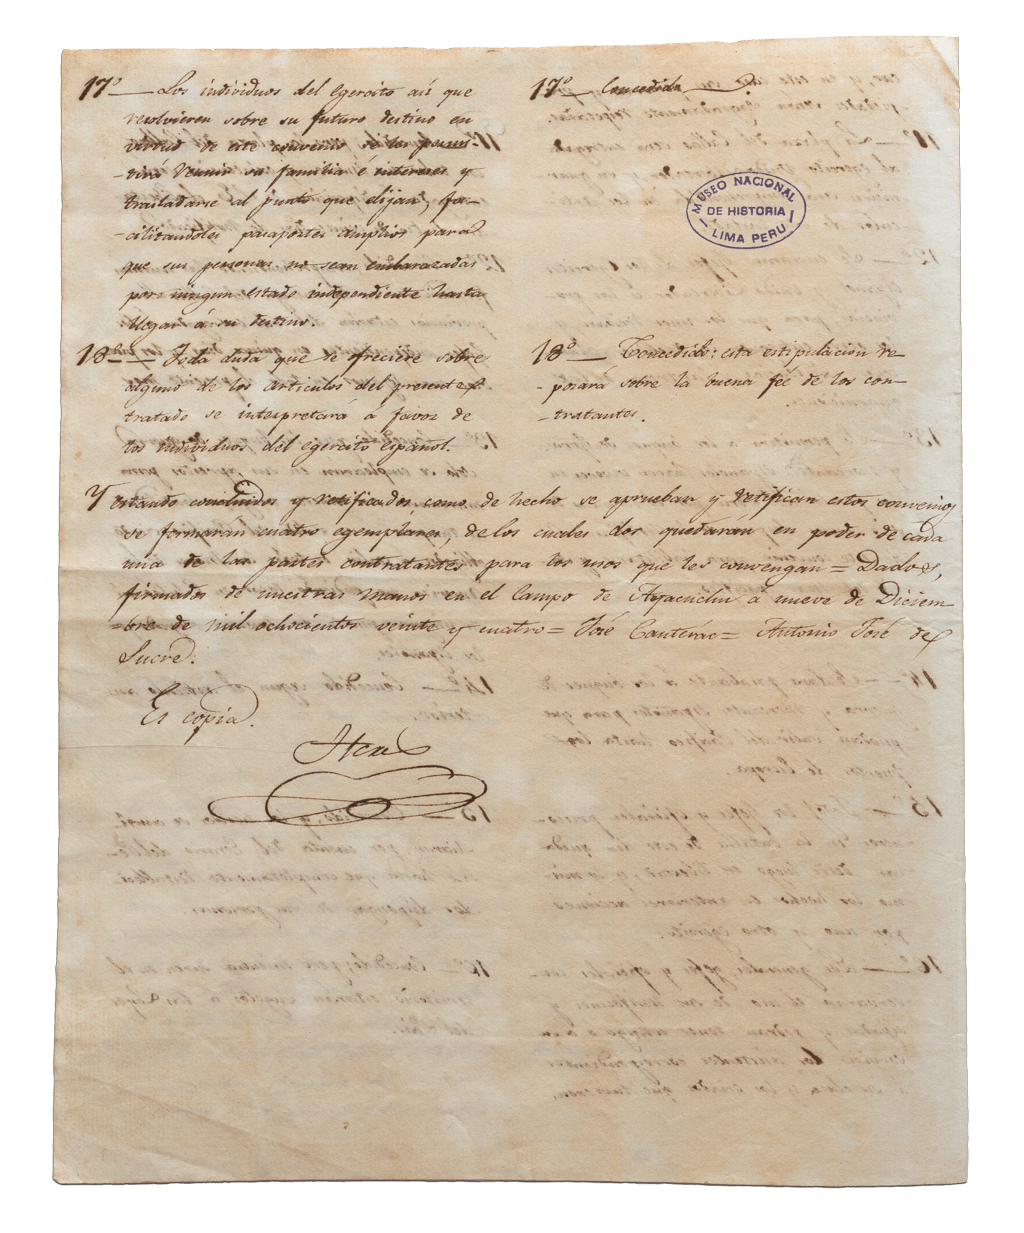 17º — Los individuos del egercito asi que
resolvieren sobre su futuro destino en
virtud de este convenio de les permi-
-tirá reunir su familia é intereses y
trasladarse al punto que elijan, fa-
-cilitandoles pasaportes amplios para
que sus personas no sean embarazadas
por ningun estado independiente hasta
llegar á su destino.
17º — Concedido —
MUSEO NACIONAL
DE HISTORIA
LIMA PERU
18º — Toda duda que se freciere sobre
alguno de los articulos del presente
tratado se interpretará a favor de
los individuos del egercito español.
18º — Concedido: esta estipulacion re-
-posará sobre la buena feé de los con-
-tratantes.
Y estando concluidos y retificados, como de hecho se aprueban y retifican estos convenios
se formarán cuatro egemplares, de los cuales dos quedáran en poder de cada
una de las partes contratantes para los usos que les convengan = Dados,
firmados de nuestras manos en el Campo de Ayacucho á nueve de Diciem-
-bre de mil ochocientos veinte y cuatro = José Canterac = Antonio José de
Sucre.
Es copia.